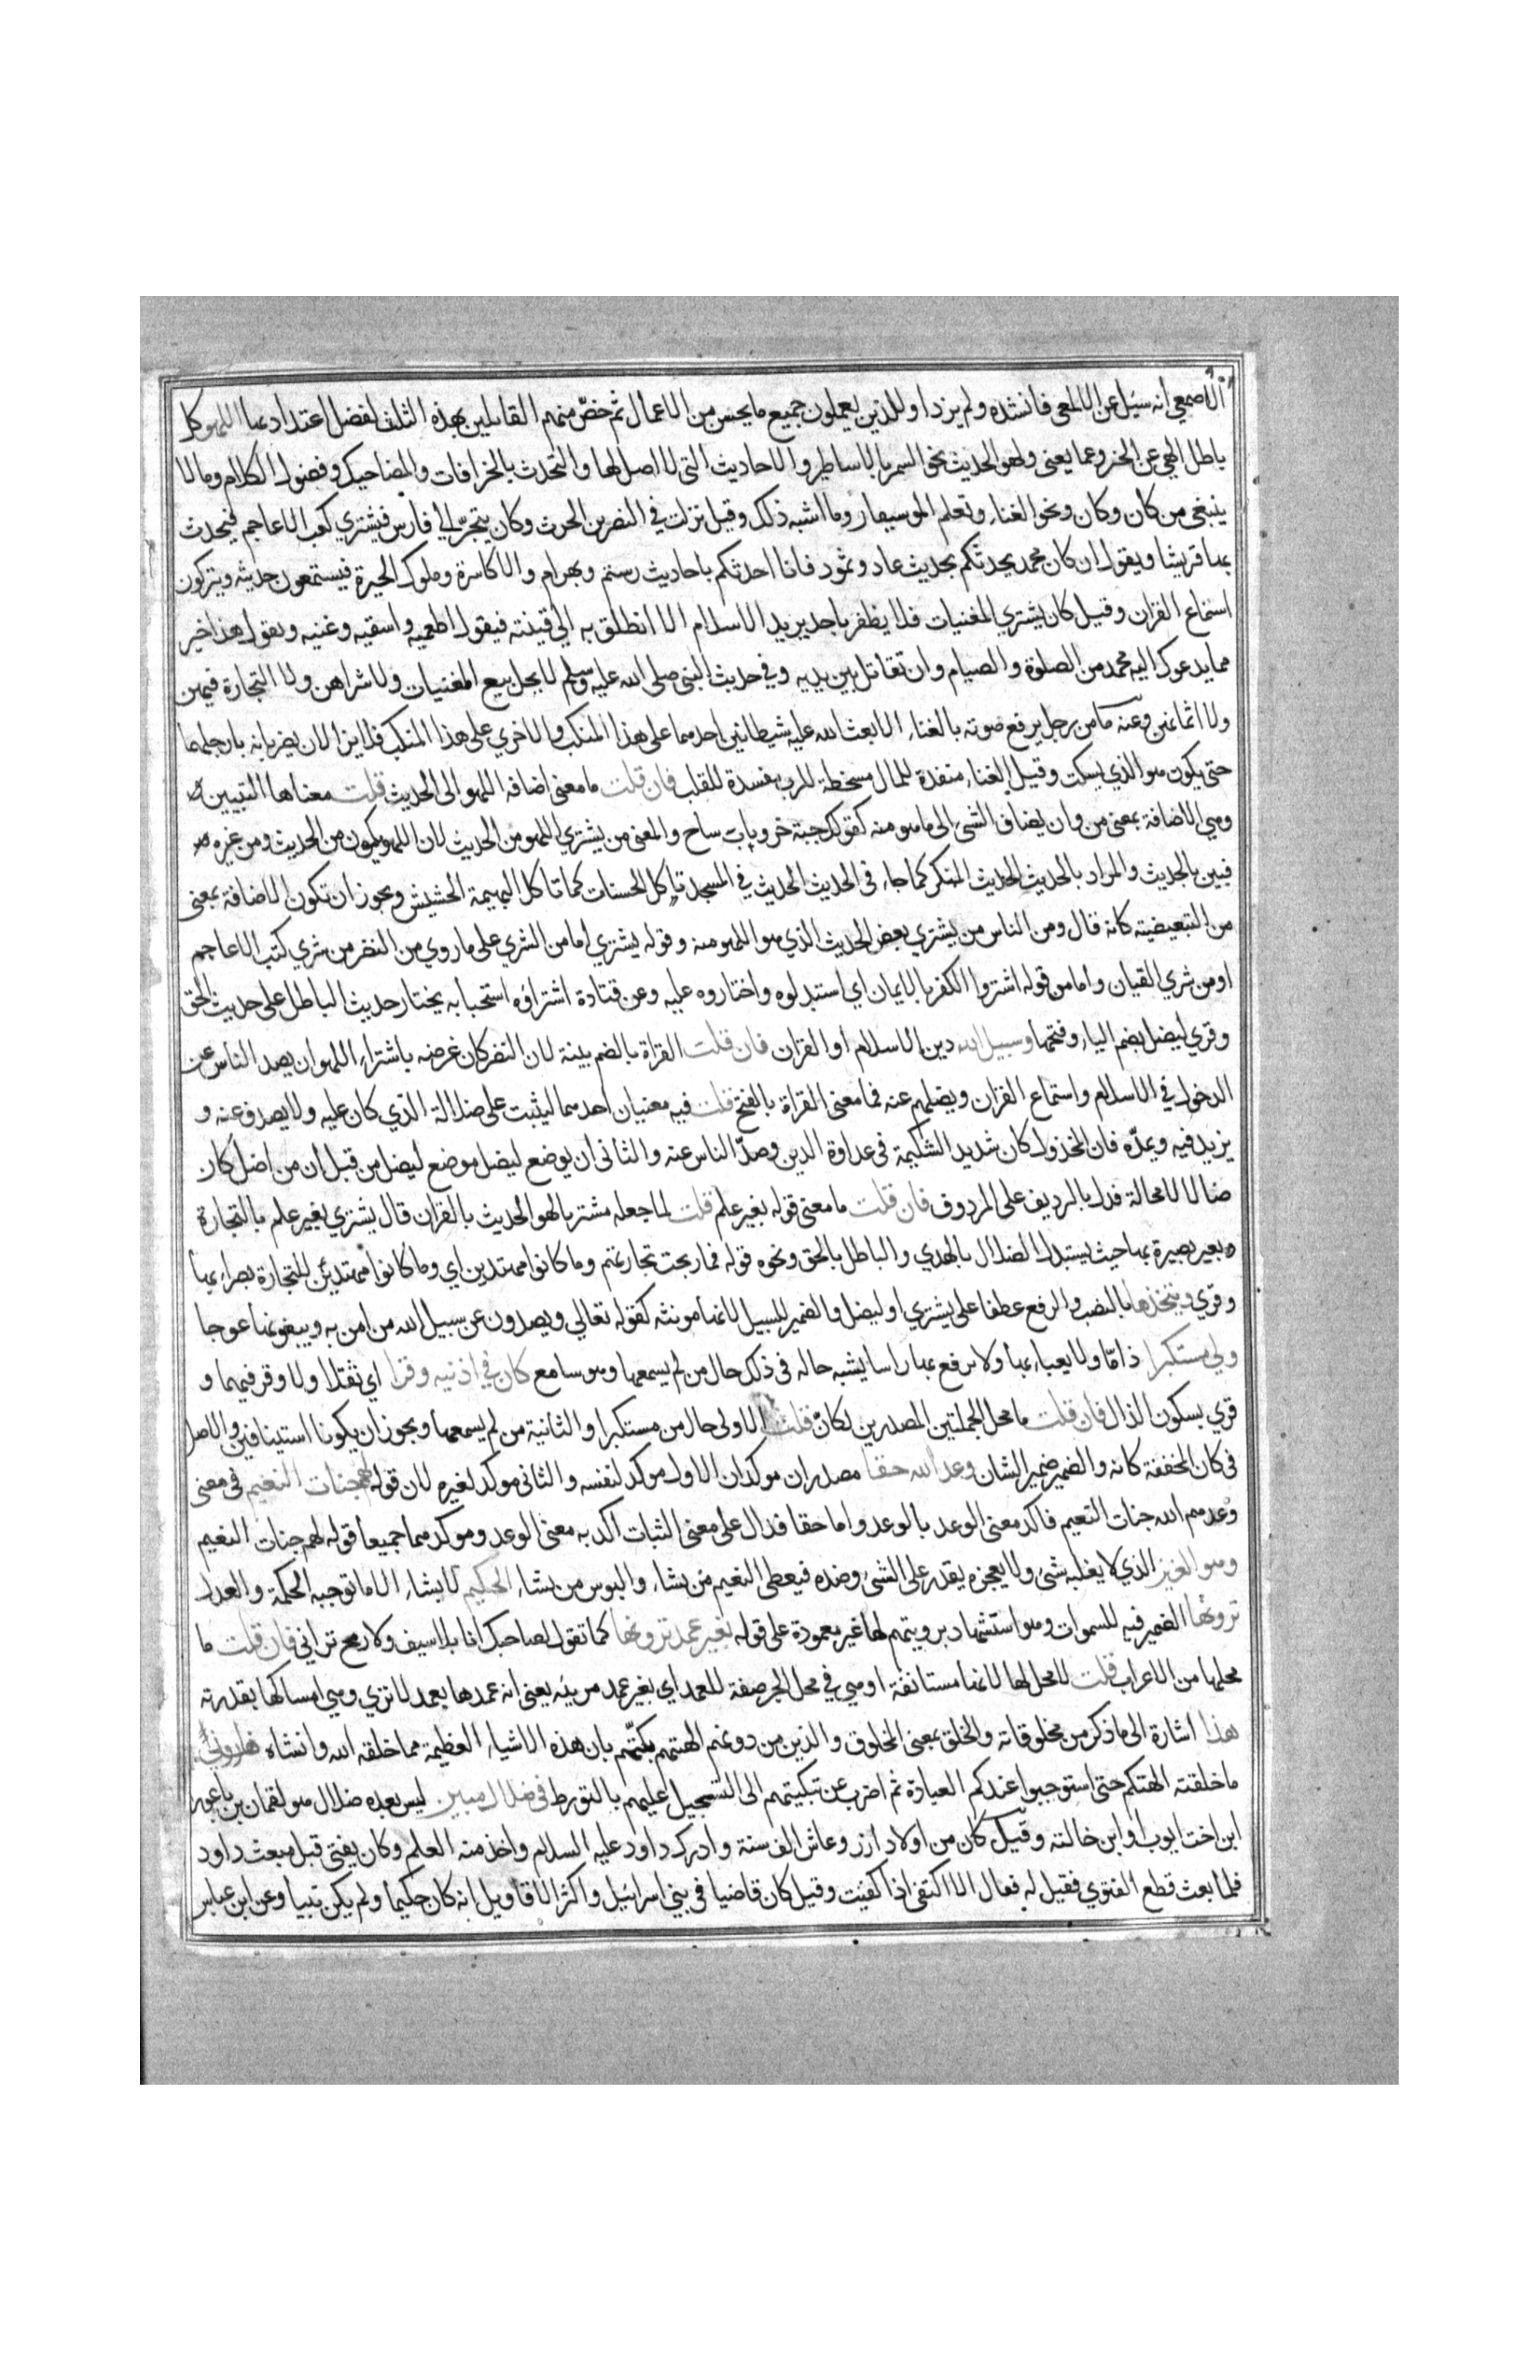 الاصمعي انه سئل عن الالمعي فانشده ولم يزد او للذين يعملون جميع ما يحسن من الاعمال ثم خص منهم القايلين بهذه الثلث لفضل اعتداد بها اللهو كل
باطل الهي عن الخير وعما يعنى ولهو الحديث نحو السمر بالاساطير والاحاديث التى لا اصل لها والتحدث بالخرافات والمضاحيك وفضول الكلام وما لا
ينبغي من كان وكان ونحو الغناء وتعلم الموسيقار وما اشبه ذلك وقيل نزلت في النضر بن الحرث وكان يتجر الي فارس فيشتري كتب الاعاجم فيحدث
بها قريشا ويقول ان كان محمد يحدثكم بحديث عاد وثمود فانا احدثكم باحاديث رستم وبهرام والاكاسرة وملوك الحيرة فيستمعون حديثه ويتركون
استماع القران وقيل كان يشتري المغنيات فلا يظفر باحد يريد الاسلام الا انطلق به الي قينته فيقول اطعميه واسقيه وغنيه ويقول هذا خير
مما يدعوك اليه محمد من الصلوة والصيام وان تقاتل بين يديه وفي حديث النبي صلى الله عليه وسلم لا يحل بيع المغنيات ولا شراهن ولا التجارة فيهن
ولا اثمانهن وعنه ما من رجل يرفع صوته بالغناء الا بعث الله عليه شيطانين احدهما على هذا المنكب والاخري على هذا المنكب فلا يزالان يضربانه بارجلهما
حتى يكون هو الذي يسكت وقيل الغناء منفدة للمال مسخطة للرب مفسدة للقلب فان قلت ما معنى اضافه اللهو الى الحديث قلت معناها التبيين
وهي الاضافة بمعنى من وان يضاف الشئ الى ما هو منه كقولك جبة خز وباب ساج والمعنى من يشتري اللهو من الحديث لان اللهو يكون من الحديث ومن غيره
فبين بالحديث والمراد بالحديث الحديث المنكر كما جاء فى الحديث الحديث في المسجد تاكل الحسنات كما تاكل البهيمة الحشيش ويجوز ان تكون الاضافة بمعنى
من التبعيضية كانه قال ومن الناس من يشتري بعض الحديث الذي هو اللهو منه وقوله يشتري اما من الشري على ما روي من النضر من شري كتب الاعاجم
او من شري القيان واما من قوله اشتروا الكفر بالايمان اي استبدلوه واختاروه عليه وعن قتادة اشتراؤه استحبابه يختار حديث الباطل على حديث الحق
وقري ليضل بضم الياء وفتحها وسبيل الله دين الاسلام او القران فان قلت القراة بالضم بينة لان النضر كان غرضه باشتراء اللهو ان يصد الناس عن
الدخول في الاسلام واستماع القران ويضلهم عنه فما معنى القراة بالفتح قلت فيه معنيان احدهما ليثبت على ضلالة الذي كان عليه ولا يصدف عنه و
يزيد فيه ويمده فان المخذول كان شديد الشكيمة فى عداوة الدين وصد الناس عنه والثانى ان يوضع ليضل موضع ليضل من قبل ان من اضل كان
ضالا لا محالة فدل بالرديف على المردوف فان قلت ما معنى قوله بغير علم قلت لما جعله مشتريا لهو الحديث بالقران قال يشتري بغير علم بالتجارة
وبغير بصيرة بها حيث يستبدل الضلال بالهدي والباطل بالحق ونحوه قوله فما ربحت تجارتهم وما كانوا مهتدين اي وما كانوا مهتدين للتجارة بصراء بها
وقري ويتخذها بالنصب والرفع عطفا على يشتري او ليضل والضمير للسبيل لانها مونثه كقوله تعالي ويصدون عن سبيل الله من امن به ويبغونها عوجا
ولي مستكبرا ذاما ولا يعباء بها ولا يرفع بها راسا يشبه حاله فى ذلك حال من لم يسمعها وهو سامع كان في اذنيه وقرا اي ثقلا ولا وقر فيهما و
قري بسكون الذال فان قلت ما محل الجملتين المصدرين لكان قلت الاولى حال من مستكبرا والثانية من لم يسمعها ويجوز ان يكونا استينافين والاصل
فى كان المخففة كانه والضمير ضمير الشان وعد الله حقا مصدران موكدان الاول موكد لنفسه والثانى موكد لغيره لان قوله لهم جنات النعيم فى معنى
وعدهم الله جنات النعيم فاكد معنى الوعد بالوعد واما حقا فدال على معنى الثبات اكد به معنى الوعد وموكدهما جميعا قوله لهم جنات النعيم
وهو العزيز الذي لا يغلبه شئ ولا يعجزه يقدر على الشئ وضده فيعطى النعيم من يشاء والبوس من يشاء الحكيم لا يشاء الا ما توجبه الحكمة والعدل
ترونها الضمير فيه للسموات وهو استشهاد برويتهم لها غير معمودة على قوله بغير عمد ترونها كما تقول لصاحبك انا بلا سيف ولا رمح تراني فان قلت ما
محلها من الاعراب قلت لا محل لها لانها مستانفة او هي في محل الجر صفة للعمد اي بغير عمد مرئيه يعنى انه عمدها بعمد لا تري وهي امساكها بقدرته
هذا اشارة الى ما ذكر من مخلوقاته والخلق بمعنى المخلوق والذين من دونهم الهتهم بكتهم بان هذه الاشياء العظيمة مما خلقه الله وانشاه فاروني
ما خلقته الهتكم حتى استوجبوا عندكم العبادة ثم اضرب عن تبكيتهم الى التسجيل عليهم بالتورط فى ضلال مبين ليس بعده ضلال هو لقمان بن باعورا
ابن اخت ايوب او ابن خالته وقيل كان من اولاد ازر وعاش الف سنة وادرك داود عليه السلام واخذ منه العلم وكان يفتى قبل مبعث داود
فلما بعث قطع الفتوي فقيل له فعال الا اكتفى اذا كفيت وقيل كان قاضيا فى بني اسرائيل واكثر الاقاويل انه كان حكيما ولم يكن نبيا وعن ابن عباس